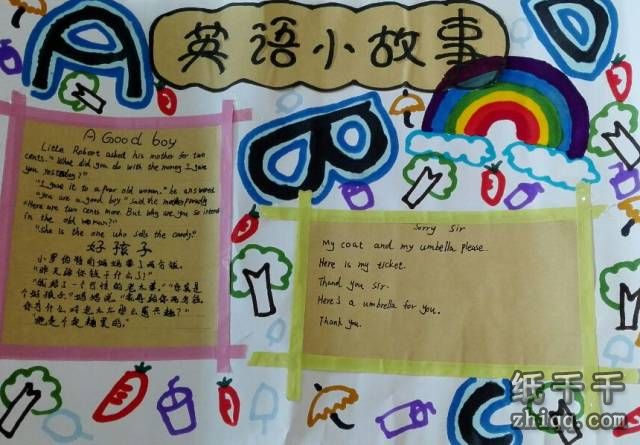 英语小故事
A
D
B
C
A Good boy
Little Robert asked his mother for two
cents. "What did you do with the money I gave
you yesterday?"
"I gave it to a poor old woman," he answered
"you are a good boy" said the mother proudly
"Here are two cents more. But why are you so interst
in the old woman?"
"she is the one who sells the candy."
好孩子
小罗伯特向妈妈要了两分钱。
"昨天给你钱干什么了?"
"我给了一个可怜的老太婆。" "你真是
个好孩子" 妈妈说。"再给你两分钱
你为什么对老太太那么感兴趣?"
"她是个卖糖果的。"
Sorry Sir
My coat and my umbella please.
Here is my ticket.
Thand you Sir.
Here's a umbrella for you.
Thank you.
纸千千
zhiqq.com